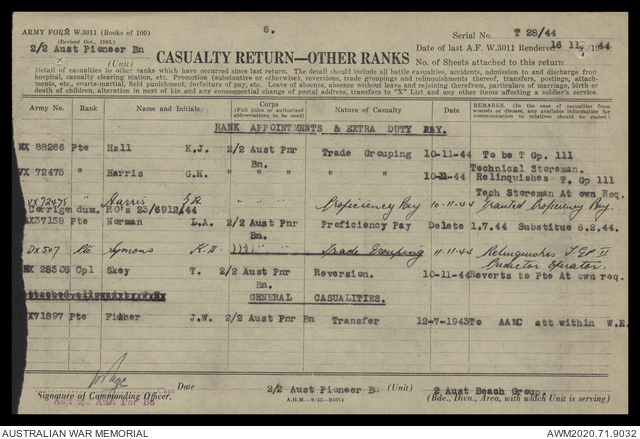 ARMY FORM W.3011 (Books of 100)
(Revised Oct., 1942.)
6.
Serial No. T 28/44
2/2 Aust Pioneer Bn
(Unit)
Date of last A.F. W.3011 Rendered 16 11 1944
CASUALTY RETURN—OTHER RANKS
No. of Sheets attached to this return.
Detail of casualties to other ranks which have occurred since last return. The detail should include all battle casualties, accidents, admission to and discharge from
hospital, casualty clearing station, etc. Promotion (substantive or otherwise), reversions, trade groupings and relinquishments thereof, transfers, postings, attach-
ments, etc., courts-martial, field punishment, forfeiture of pay, etc. Leave of absence, absence without leave and rejoining therefrom, particulars of marriage, birth or
death of children, alteration in next of kin and any consequential change of postal address, transfers to "X" List and any other items affecting a soldier's service.
Army No. Rank Name and Initials Corps (Full titles or authorized abbreviations to be used) Nature of Casualty Date REMARKS. (In the case of casualties from wounds or disease, any available information for communication to relatives should be stated.)
RANK APPOINTMENTS & EXTRA DUTY PAY.
NX 88266 Pte Hall K.J. 2/2 Aust Pnr Bn. Trade Grouping 10-11-44 To be T Gp. 111
Technical Storeman.
VX 72475 " Harris G.H. " " " " 10-11-44 Relinquishes T. Gp 111
Tech Storeman At own Req.
VX 72475 Harris G.H. Proficiency Pay 10.11.44 Granted Proficiency Pay.
Corrigendum. RO's 23/6912/44
37158 Pte Norman L.A. 2/2 Aust Pnr Bn. Proficiency Pay Delete 1.7.44 Substitute 6.2.44.
DX507 Pte Symons Trade Grouping 11.11.44 Relinquishes T GP II
Predictor Operator.
NX 28508 Cpl Skey T. 2/2 Aust Pnr Bn. Reversion. 10-11-44 Reverts to Pte At own req.
GENERAL CASUALTIES.
X71897 Pte Fisher J.W. 2/2 Aust Pnr Bn Transfer 12-7-1943 To AAMC att within W.E.
Capt
Signature of Commanding Officer.
Adj 2/2 Aust Pnr Bn
Date
2/2 Aust Pioneer Bn (Unit)
A.H.M.—9/43—B5074
2 Aust Beach Group.
(Bde., Divn., Area, with which Unit is serving)
AUSTRALIAN WAR MEMORIAL
AWM2020.71.9032